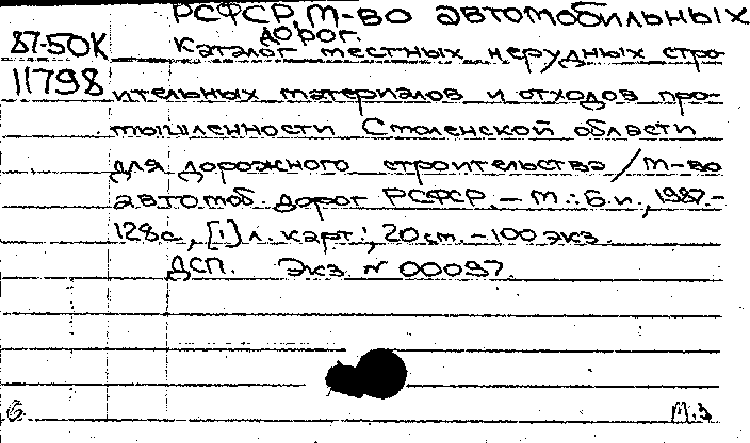 РСФСР, М-во автомобильных
дорог.
87-50К
Каталог местных нерудных стро-
11798
ительных материалов и отходов про-
мышленности Смоленской области
для дорожного строительства / М-во
автомоб. дорог РСФСР. – М.: Б.и., 1987. –
128с, [1] л. карт.; 20 см. – 100 экз.
ДСП. Экз. N 00097.